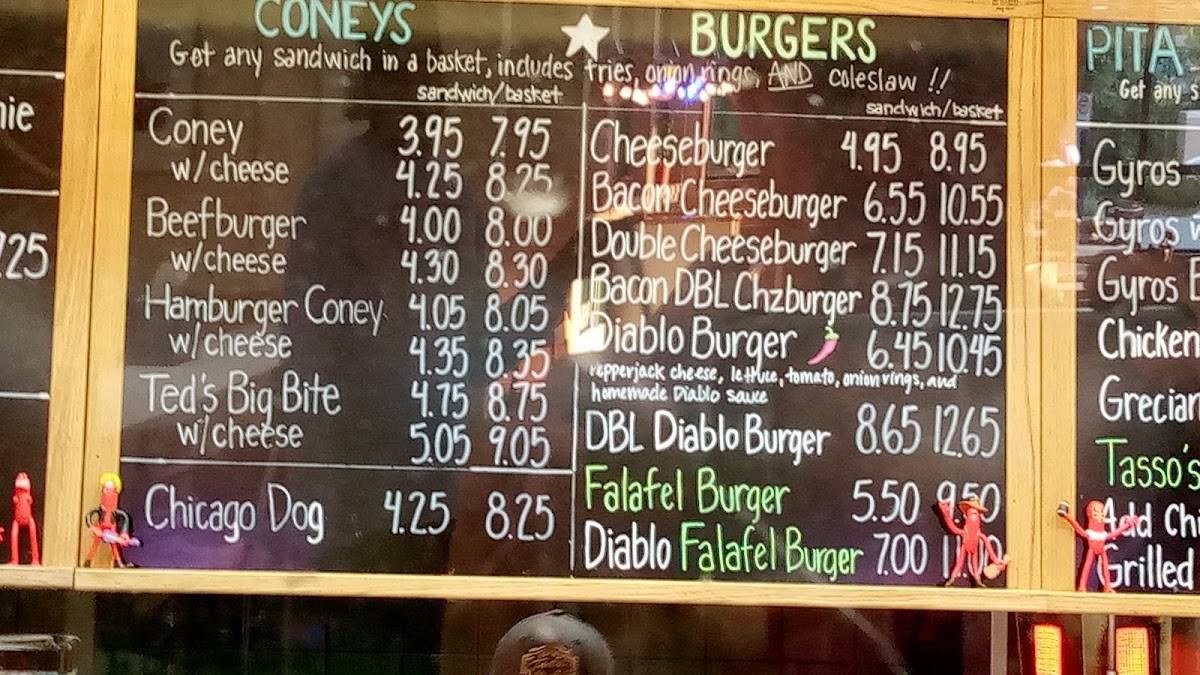 nie
725
CONEYS BURGERS
Get any sandwich in a basket, includes fries, onion rings, AND coleslaw !!
sandwich/basket
Coney 3.95 7.95
w/cheese 4.25 8.25
Beefburger 4.00 8.00
w/cheese 4.30 8.30
Hamburger Coney 4.05 8.05
w/cheese 4.35 8.35
Ted's Big Bite 4.75 8.75
w/cheese 5.05 9.05
Chicago Dog 4.25 8.25
sandwich/basket
Cheeseburger 4.95 8.95
Bacon Cheeseburger 6.55 10.55
Double Cheeseburger 7.15 11.15
Bacon DBL Chzburger 8.75 12.75
Diablo Burger 6.45 10.45
Pepperjack cheese, lettuce, tomato, onion rings, and
homemade Diablo sauce
DBL Diablo Burger 8.65 12.65
Falafel Burger 5.50 9.50
Diablo Falafel Burger 7.00
PITA
Get any s
Gyros
Gyros w
Gyros
Chicken
Grecian
Tasso's
Add Ch
Grilled